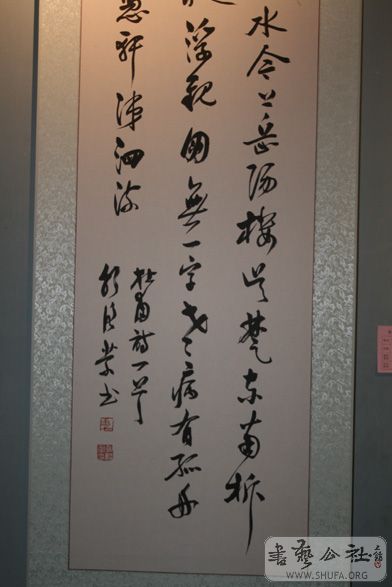 水今上岳陽樓吴楚东南坼
浮親朋無一字老病有孤舟
軒涕泗流
杜甫詩一首
书
書藝公社
WWW.SHUFA.ORG